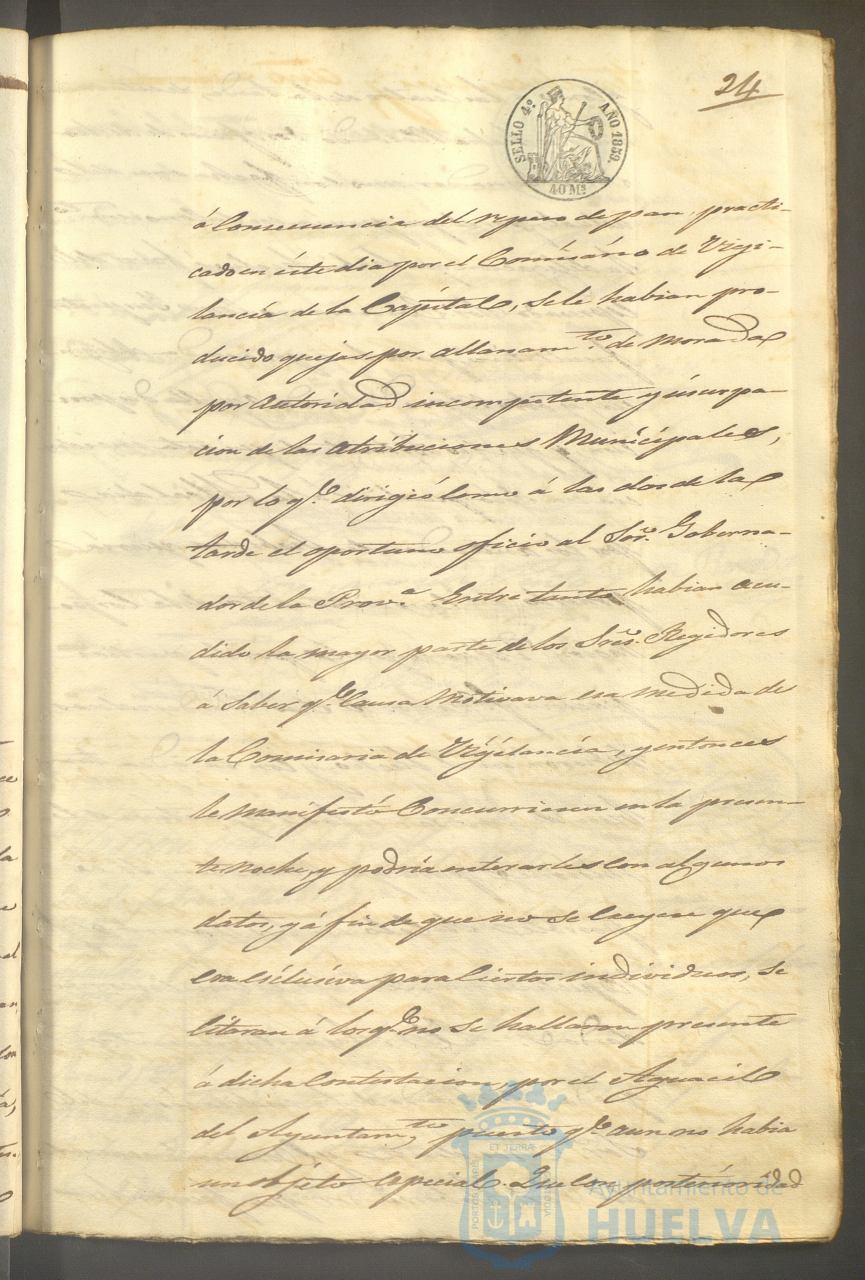 24
SELLO 4º AÑO 1859.
40 Ms
á Consecuencia del repeso de pan, practi-
cado en éste dia por el Comisário de Vigi-
lancia de la Capital, se le habian pro-
ducido quejas por allanam.to de morada
por autoridad incompetente y úsurpa-
cion de las atribuciones Municipales,
por lo q.e dirigió como á las dos de la
tarde el oportuno oficio al Sor. Goberna-
dor de la Prov.a Entre tanto habian acu-
dido la mayor parte de los Sres. Regidores
á saber q.e causa motivava esa medida de
la Comisaria de Vigilancia, y entonces
le manifestó Concurriesen en la presen-
te noche, y podría enterarles con algunos
datos, y á fin de que no se creyere que
era esclusiva para ciertos individuos, se
citaran á los q.e no se hallaron presente
á dicha contestacion, por el Aguacil
del Ayuntam.to, puesto q.e aun no habia
un objeto especial. Que con posterioridad
ET TERRÆ
Ayuntamiento de
HUELVA